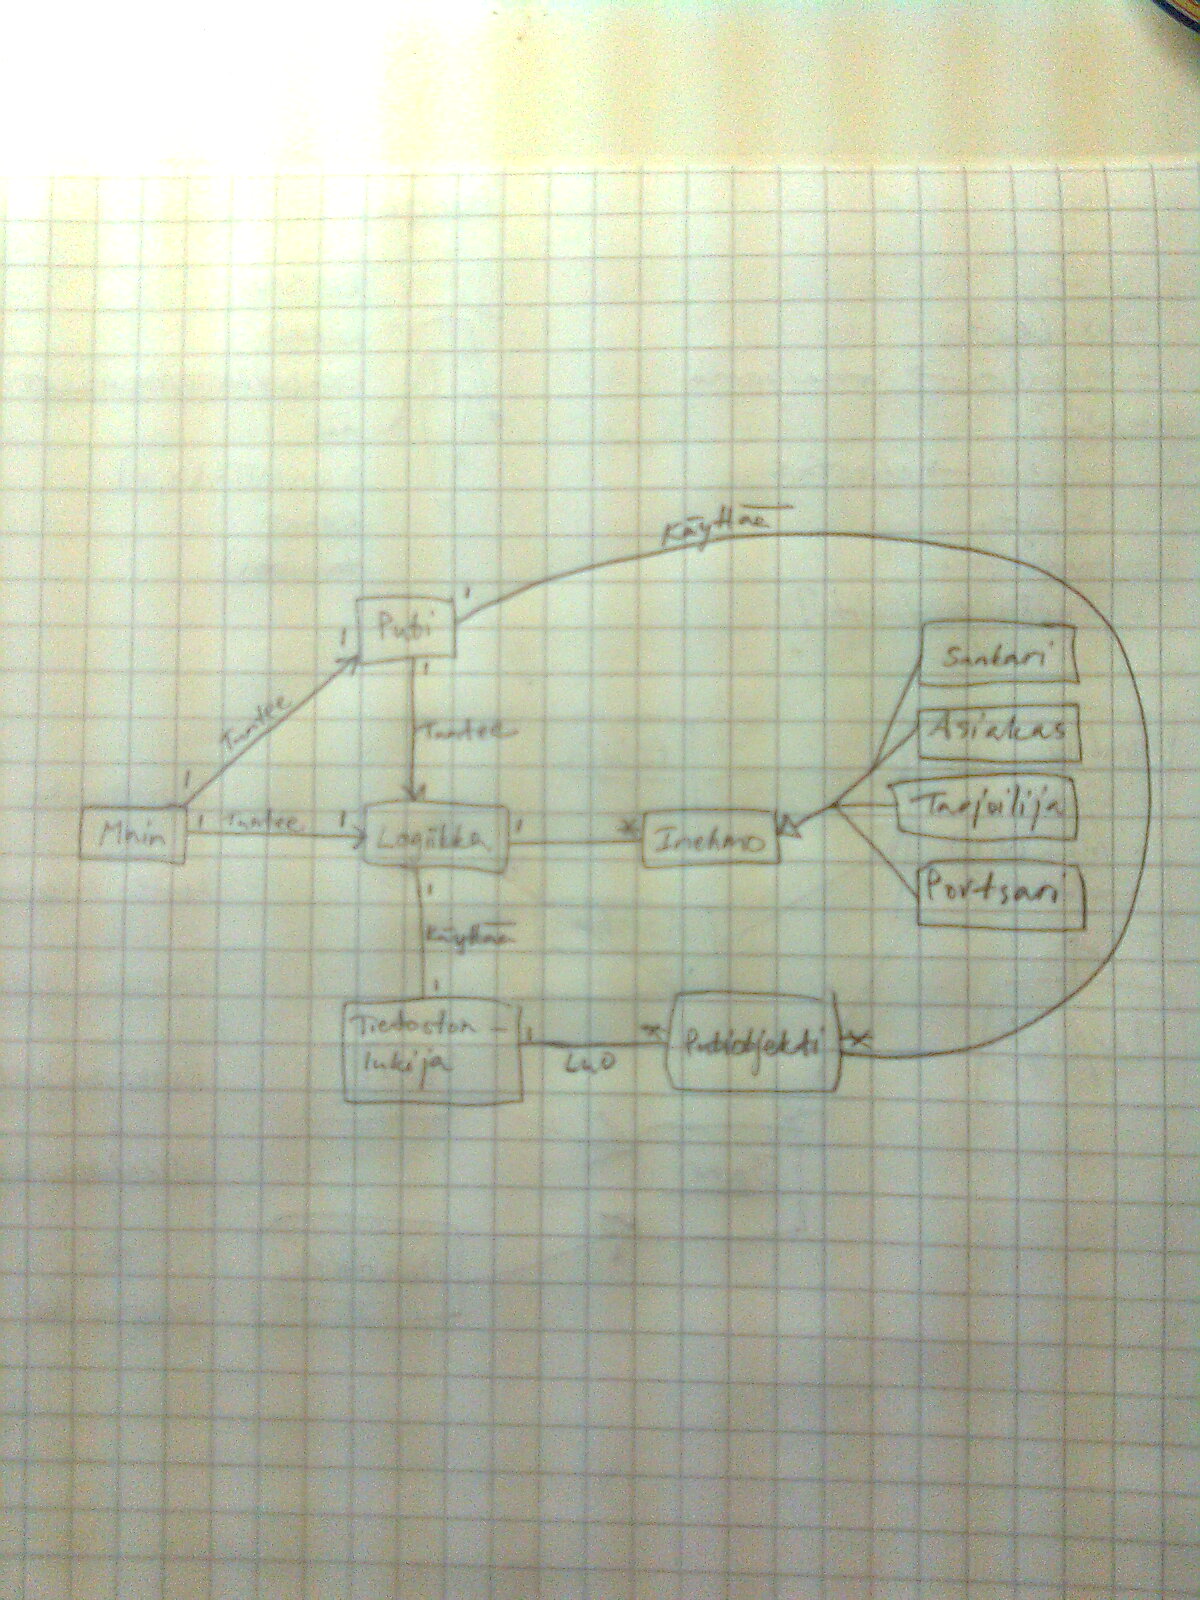 Käyttää
1
Pubi
1
1
Tuntee
Tuntee
1
Main
1
Tuntee
1
Logiikka
1
*
Inehmo
Sankari
Asiakas
Tarjoilija
Portsari
1
Käyttää
1
Tiedoston-
lukija
1
Luo
*
Pubiobjekti
*